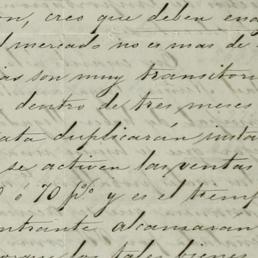 on, creo que deben ena
l mercado no es mas de
as son muy transitori
dentro de tres meses
ata duplicarán insta
se activen las ventas
ó 70 p% y es el temp
ntrante alcanzaran
porque los tales bienes